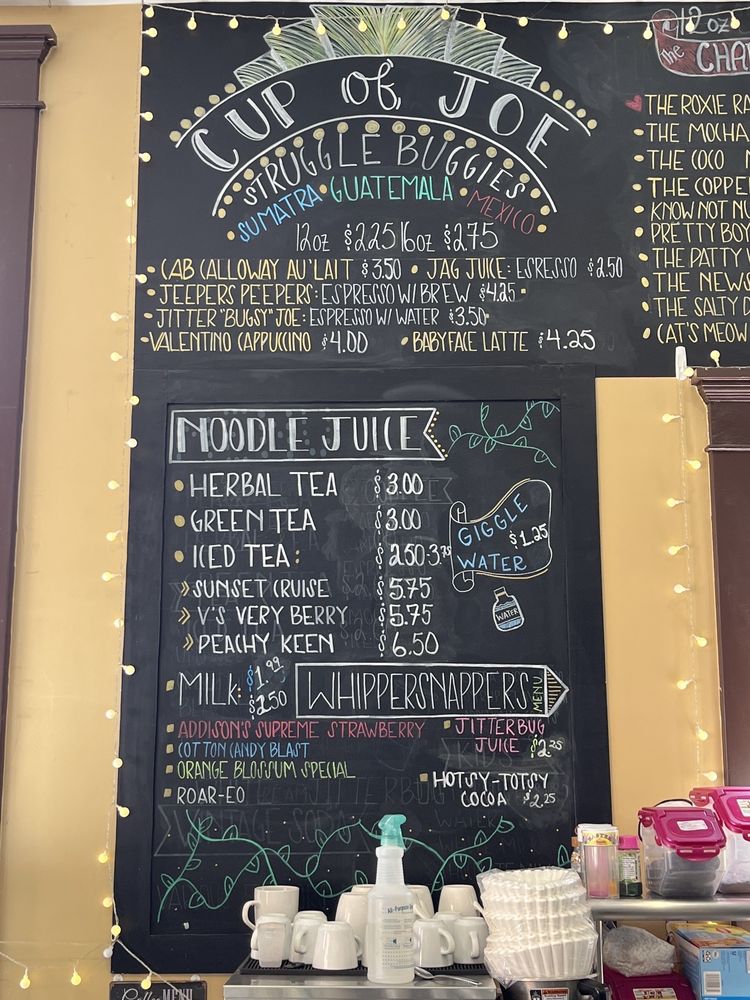 CUP of JOE
STRUGGLE BUGGIES
SUMATRA • GUATEMALA • MEXICO
12oz $2.25 16oz $2.75
• CAB CALLOWAY AU'LAIT $3.50 • JAG JUICE: ESPRESSO $2.50
• JEEPERS PEEPERS: ESPRESSO W/ BREW $4.25 •
• JITTER "BUGSY" JOE: ESPRESSO W/ WATER $3.50 •
• VALENTINO CAPPUCCINO $4.00 • BABYFACE LATTE $4.25
12oz
The CHA
THE ROXIE RA
• THE MOCHA
• THE COCO
• THE COPPE
• KNOW NOT NU
• PRETTY BOY
• THE PATTY
• THE NEWS
• THE SALTY D
• CAT'S MEOW
NOODLE JUICE
• HERBAL TEA $3.00
• GREEN TEA $3.00
• ICED TEA: $2.50 3.75
» SUNSET CRUISE $5.75
» V'S VERY BERRY $5.75
» PEACHY KEEN $6.50
GIGGLE WATER $1.25
WATER
• MILK: $1.99 $2.50
WHIPPERSNAPPERS MENU
• ADDISON'S SUPREME STRAWBERRY
• COTTON CANDY BLAST
• ORANGE BLOSSUM SPECIAL
• ROAR-EO
• JITTERBUG JUICE $2.25
• HOTSY-TOTSY COCOA $2.25
MENU